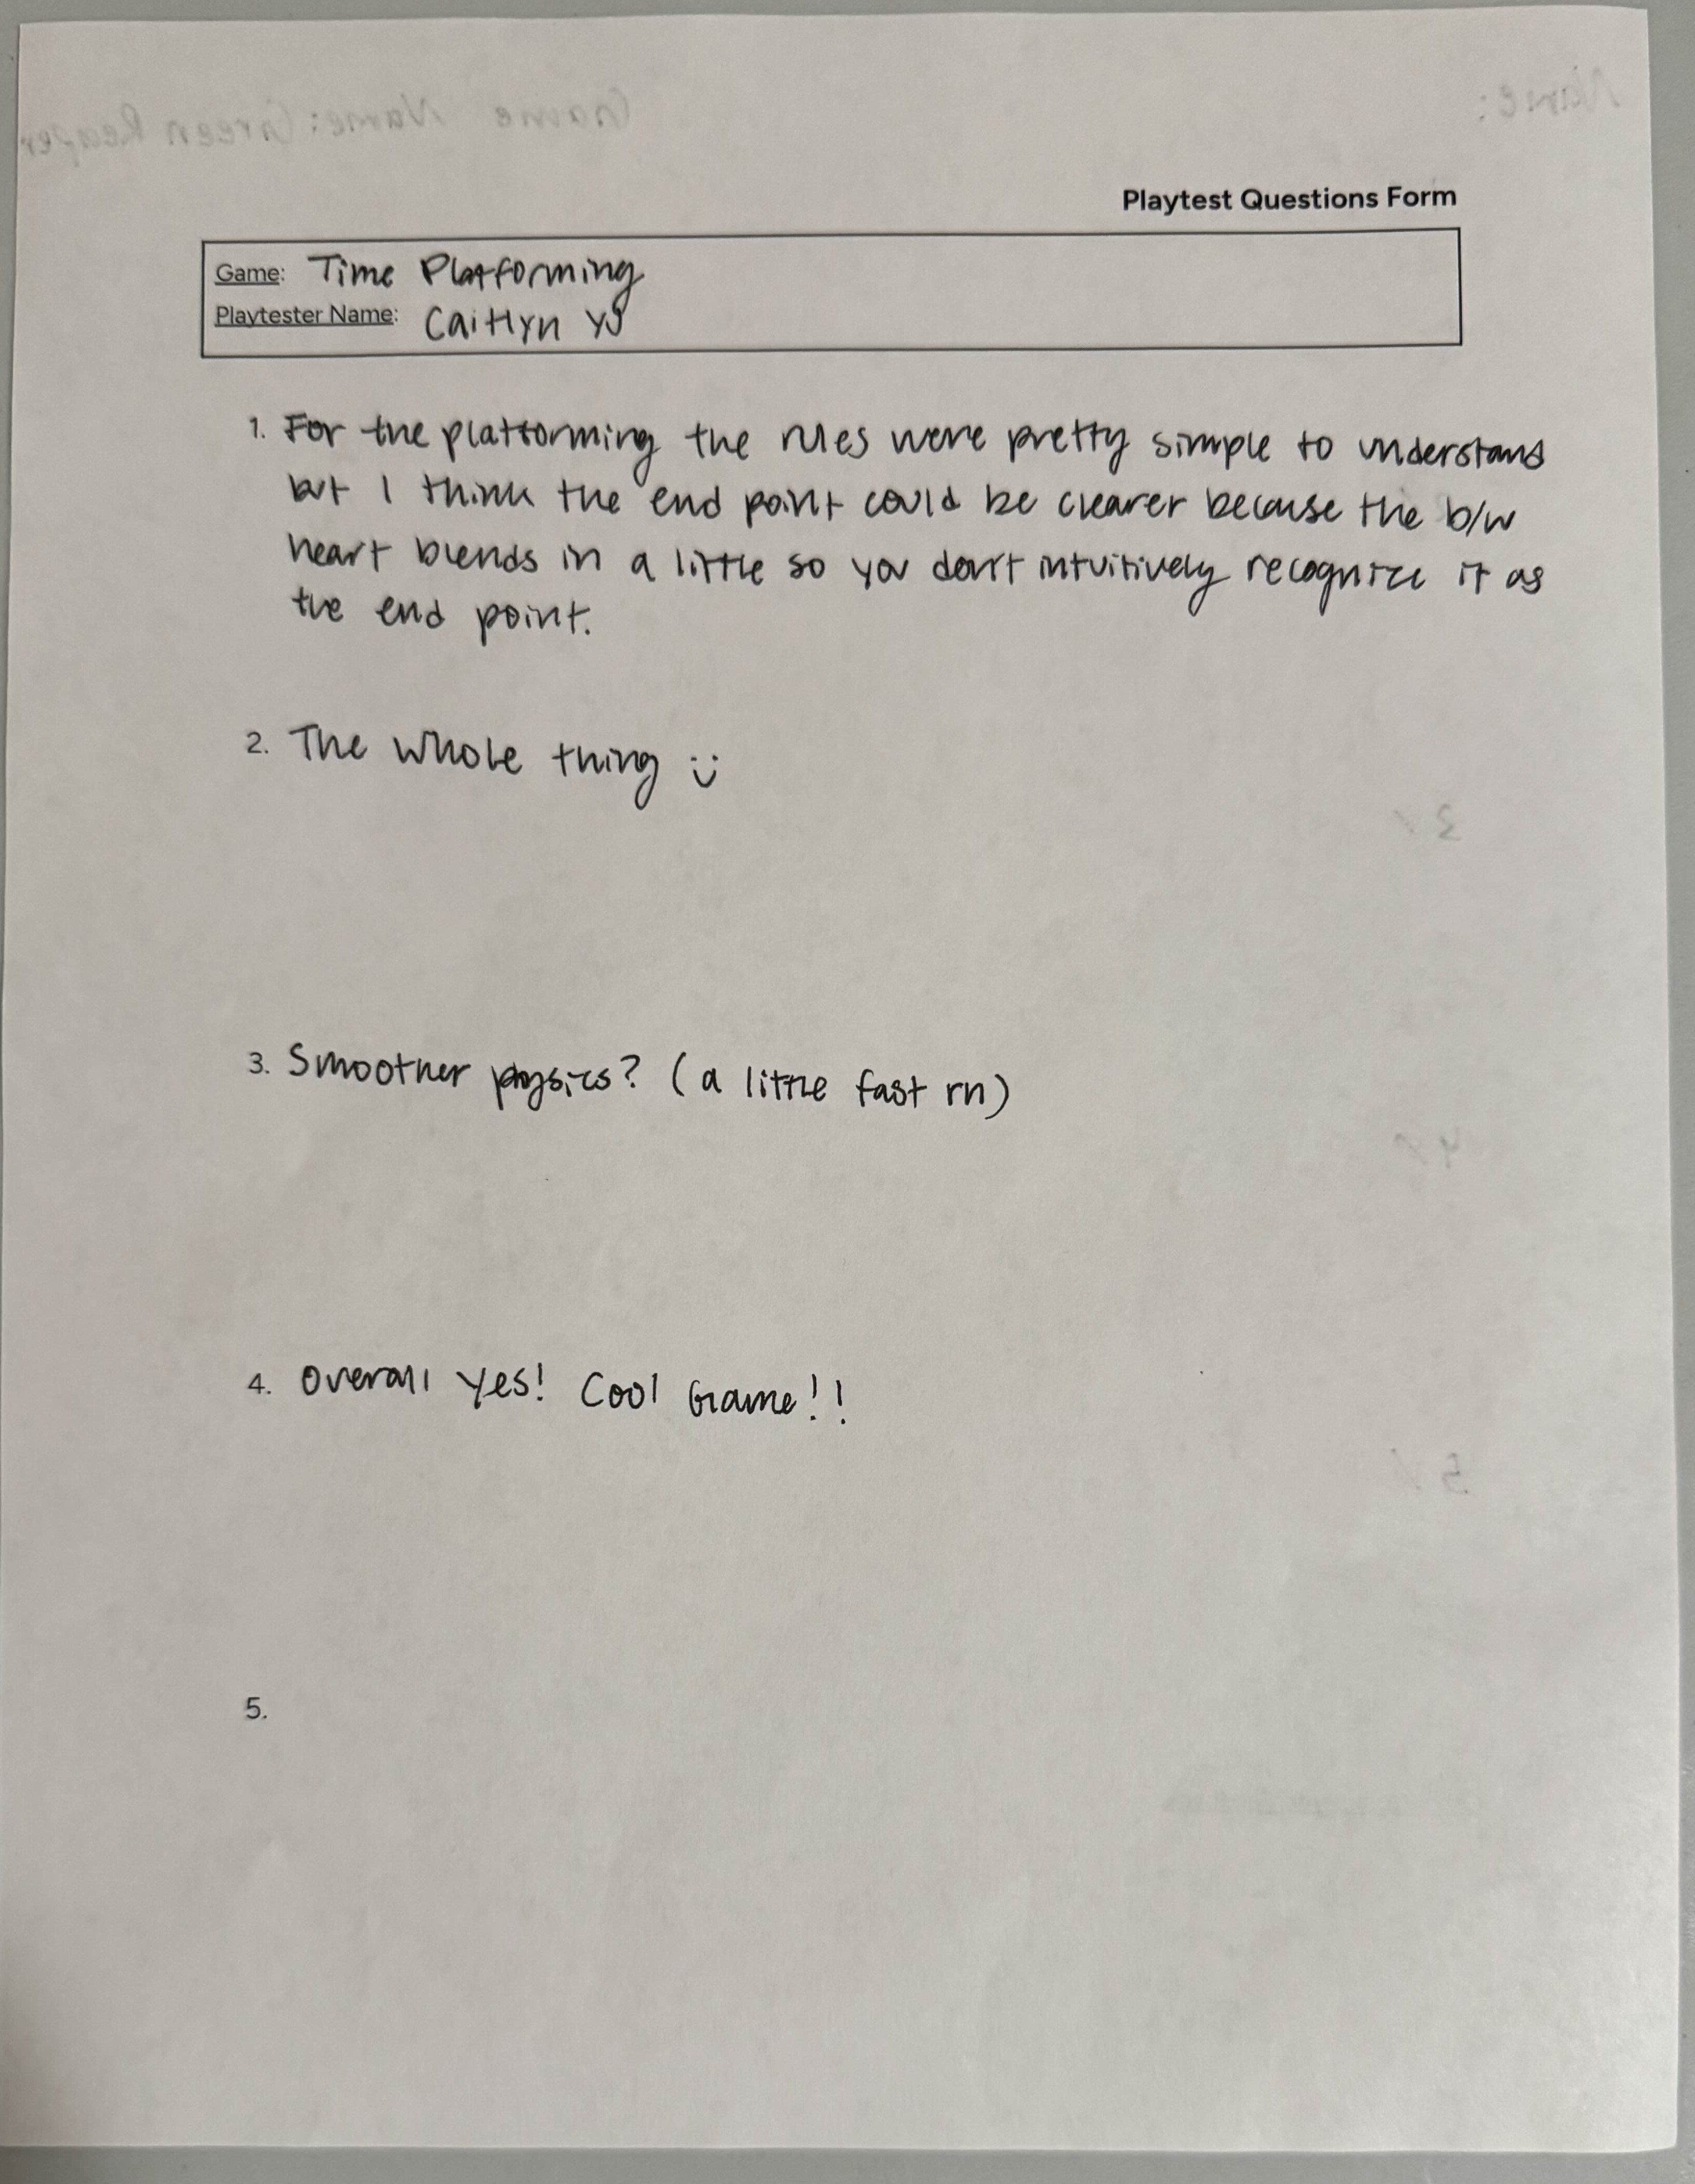 Game Name: Green Reaper
Name:
Playtest Questions Form
Game: Time Platforming
Playtester Name: Caitlyn YJ
1. For the platforming the rules were pretty simple to understand
but I think the end point could be clearer because the b/w
heart blends in a little so you don't intuitively recognize it as
the end point.
2. The whole thing :)
3. Smoother physics? (a little fast rn)
4. Overall yes! Cool Game!!
5.